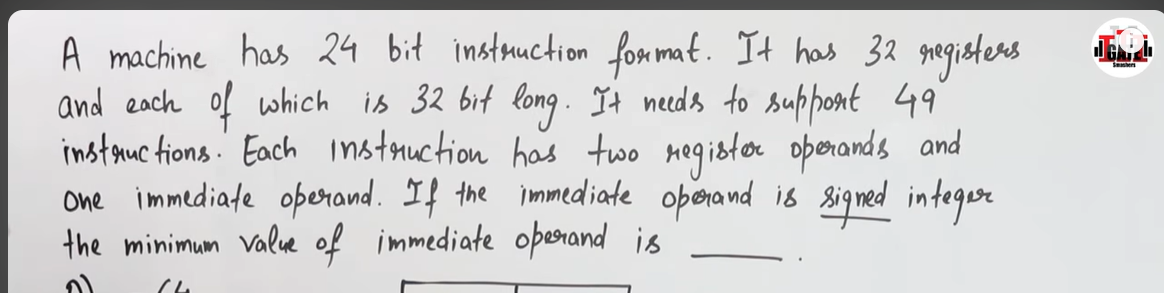 A machine has 24 bit instruction format. It has 32 registers
and each of which is 32 bit long. It needs to support 49
instructions. Each instruction has two register operands and
one immediate operand. If the immediate operand is signed integer
the minimum value of immediate operand is ______.
GATE
Smashers